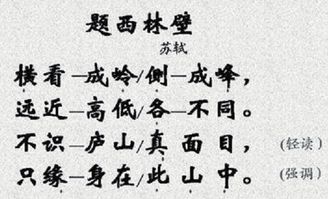 题西林壁
苏轼
横看—成岭/侧—成峰，
远近—高低/各—不同。
不识—庐山/真面目，（轻读）
只缘—身在/此山中。（强调）